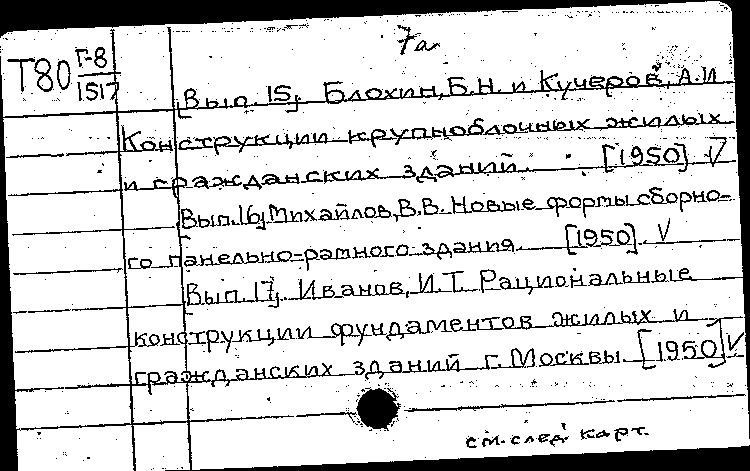 7а
Т80 Г-8
1517
[Вып. 15]. Блохин, Б.Н. и Кучеров, А.И
Конструкции крупноблочных жилых
и гражданских зданий. [1950] V
[Вып. 16] Михайлов, В.В. Новые формы сборно-
го панельно-рамного здания. [1950]. V
[Вып. 17]. Иванов, И.Т. Рациональные
конструкции фундаментов жилых и
гражданских зданий г. Москвы. [1950] V
см. след. карт.